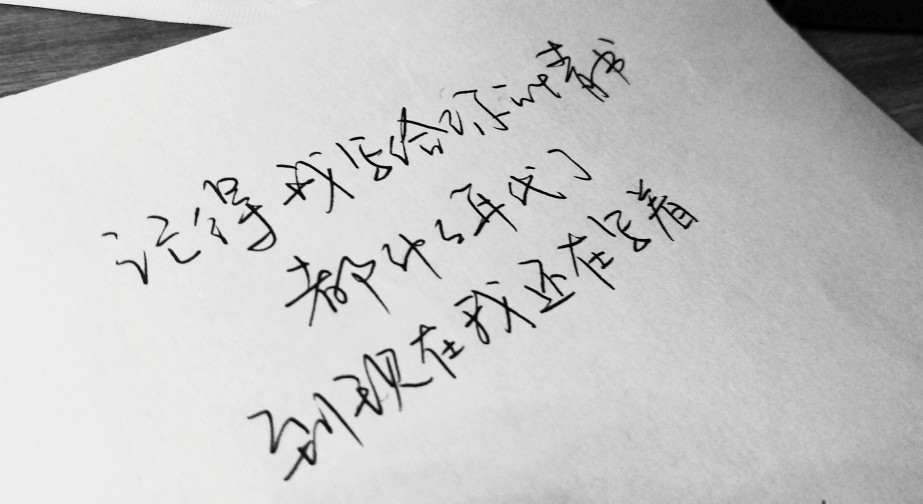 记得我写给你的情书
都什么年代了
到现在我还在写着